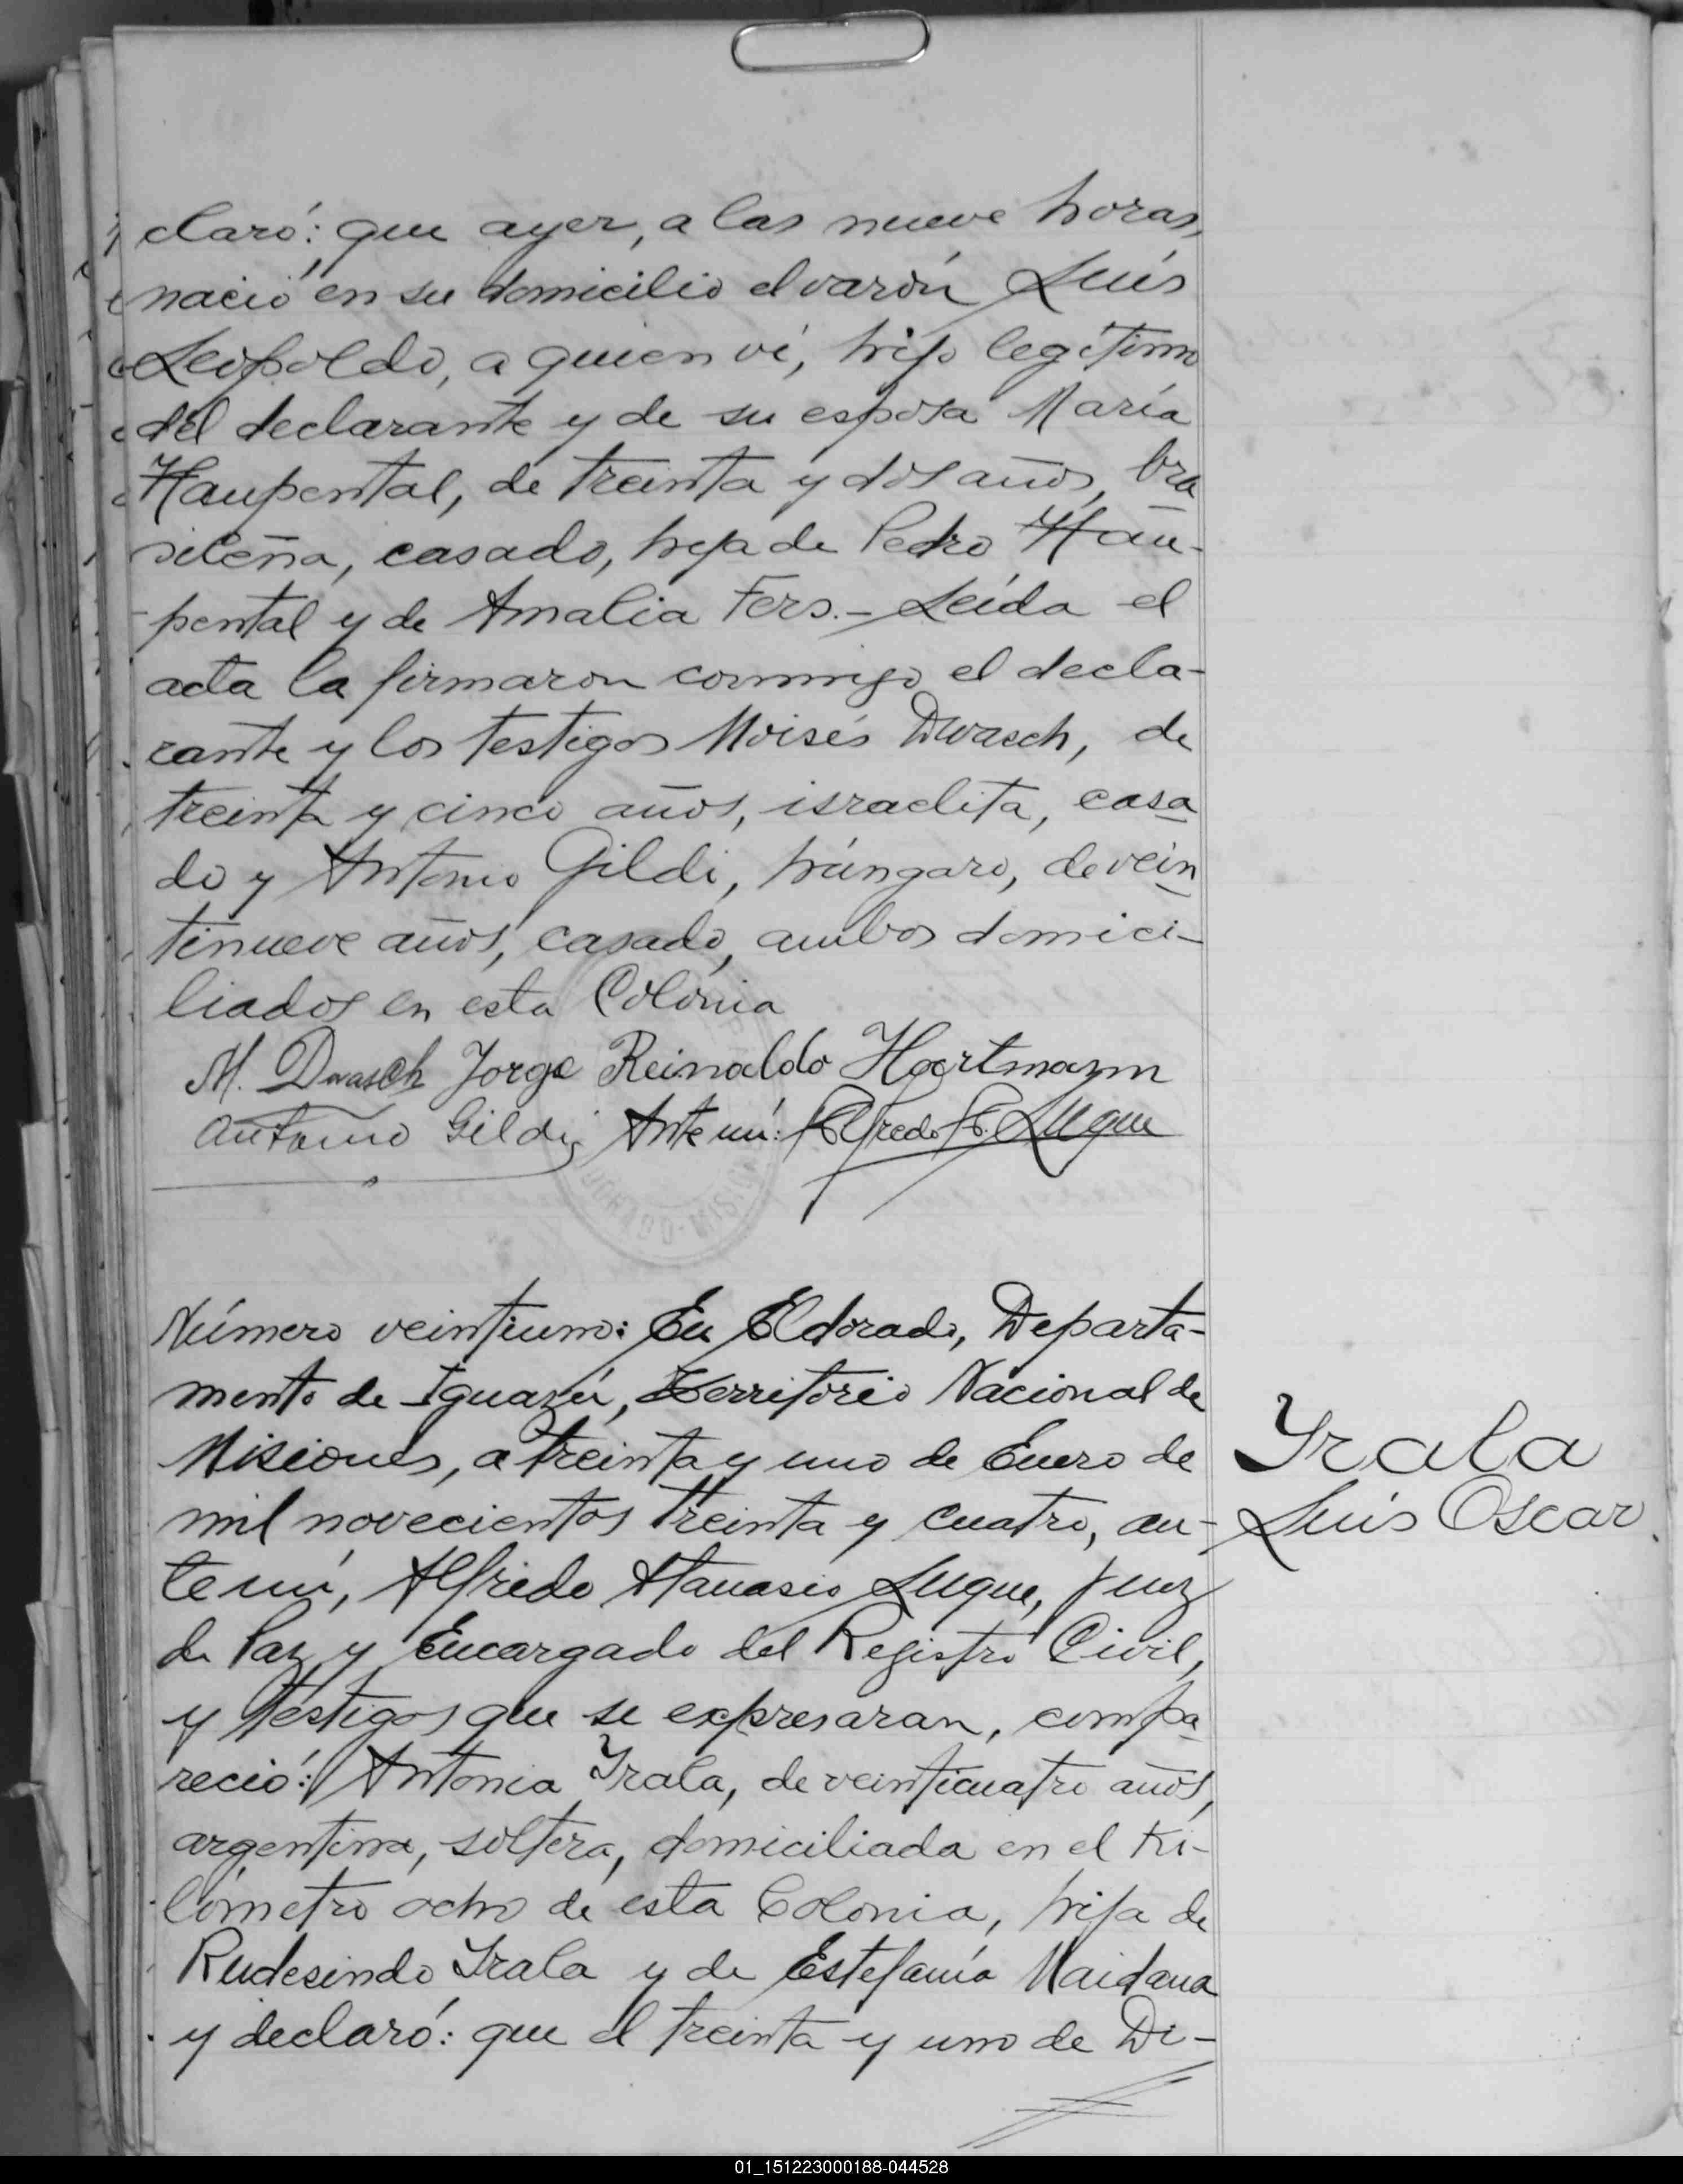 claró: que ayer, a las nueve horas,
nació en su domicilio el varón Luis
Leopoldo, a quien ví, hijo legítimo
del declarante y de su esposa María
Haupental, de treinta y dos años, bra
sileña, casado, hija de Pedro Hau-
pental y de Amalia Fers.- Leída el
acta la firmaron conmigo el decla-
rante y los testigos Moisés Dwasch, de
treinta y cinco años, israelita, casa
do y Antonio Gildi, húngaro, de vein
tinueve años, casado, ambos domici-
liados en esta Colonia
M. Dwasch Jorge Reinaldo Hartmann
Antonio Gildi Ante mí: Alfredo A. Luque
Número veintiuno: En Eldorado, Departa-
mento de Iguazú, Territorio Nacional de
Misiones, a treinta y uno de Enero de
mil novecientos treinta y cuatro, an-
te mí, Alfredo Atanasio Luque, Juez
de Paz y Encargado del Registro Civil,
y testigos que se expresaran, compa
reció: Antonia Yrala, de veinticuatro años,
argentina, soltera, domiciliada en el Ki-
lómetro ocho de esta Colonia, hija de
Rudesindo Yrala y de Estefanía Maidana
y declaró: que el treinta y uno de Di-
Yrala
Luis Oscar
01_151223000188-044528